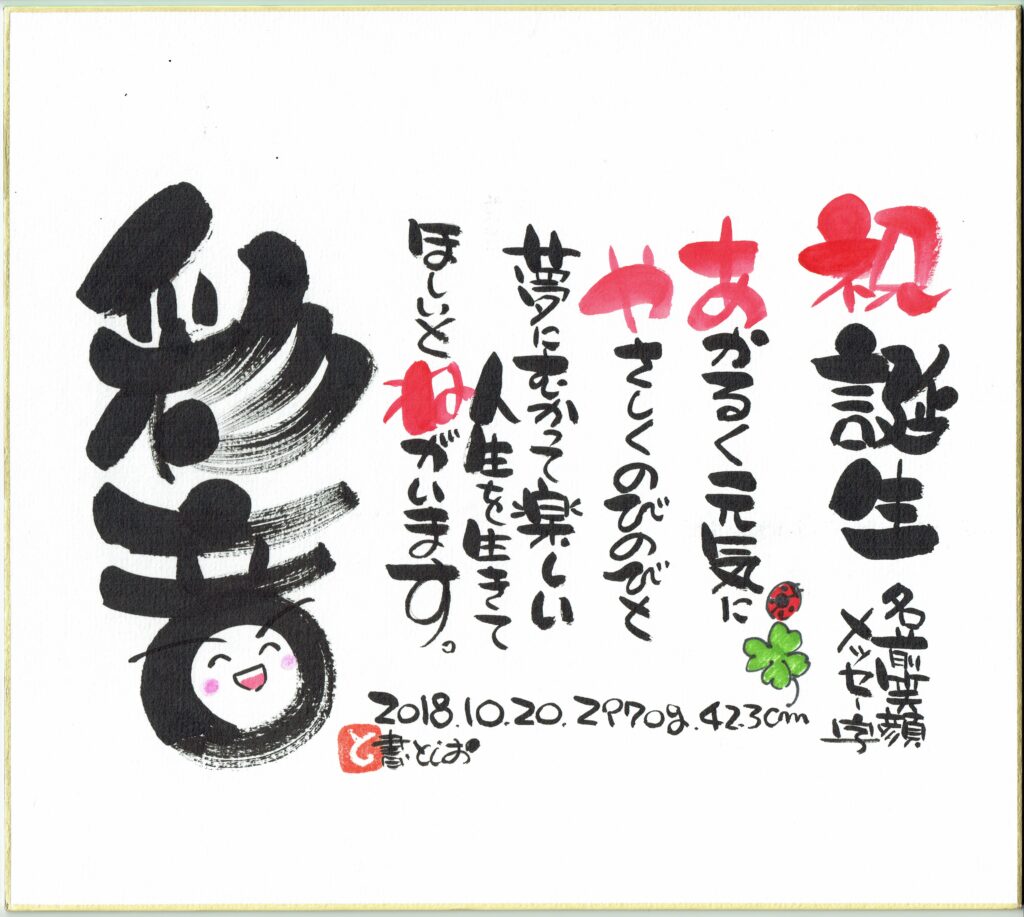 祝誕生
名前笑顔
メッセー字
あかるく元気に
やさしくのびのびと
夢にむかって楽しい
人生を生きて
ほしいとねがいます。
彩音
2018.10.20.2970g.42.3cm
と
書.としお